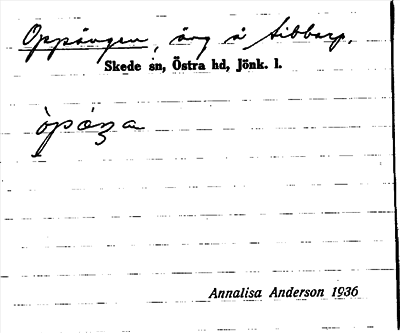 Oppängen, äng å Sibbarp.
Skede sn, Östra hd, Jönk. l.
Annalisa Anderson 1936